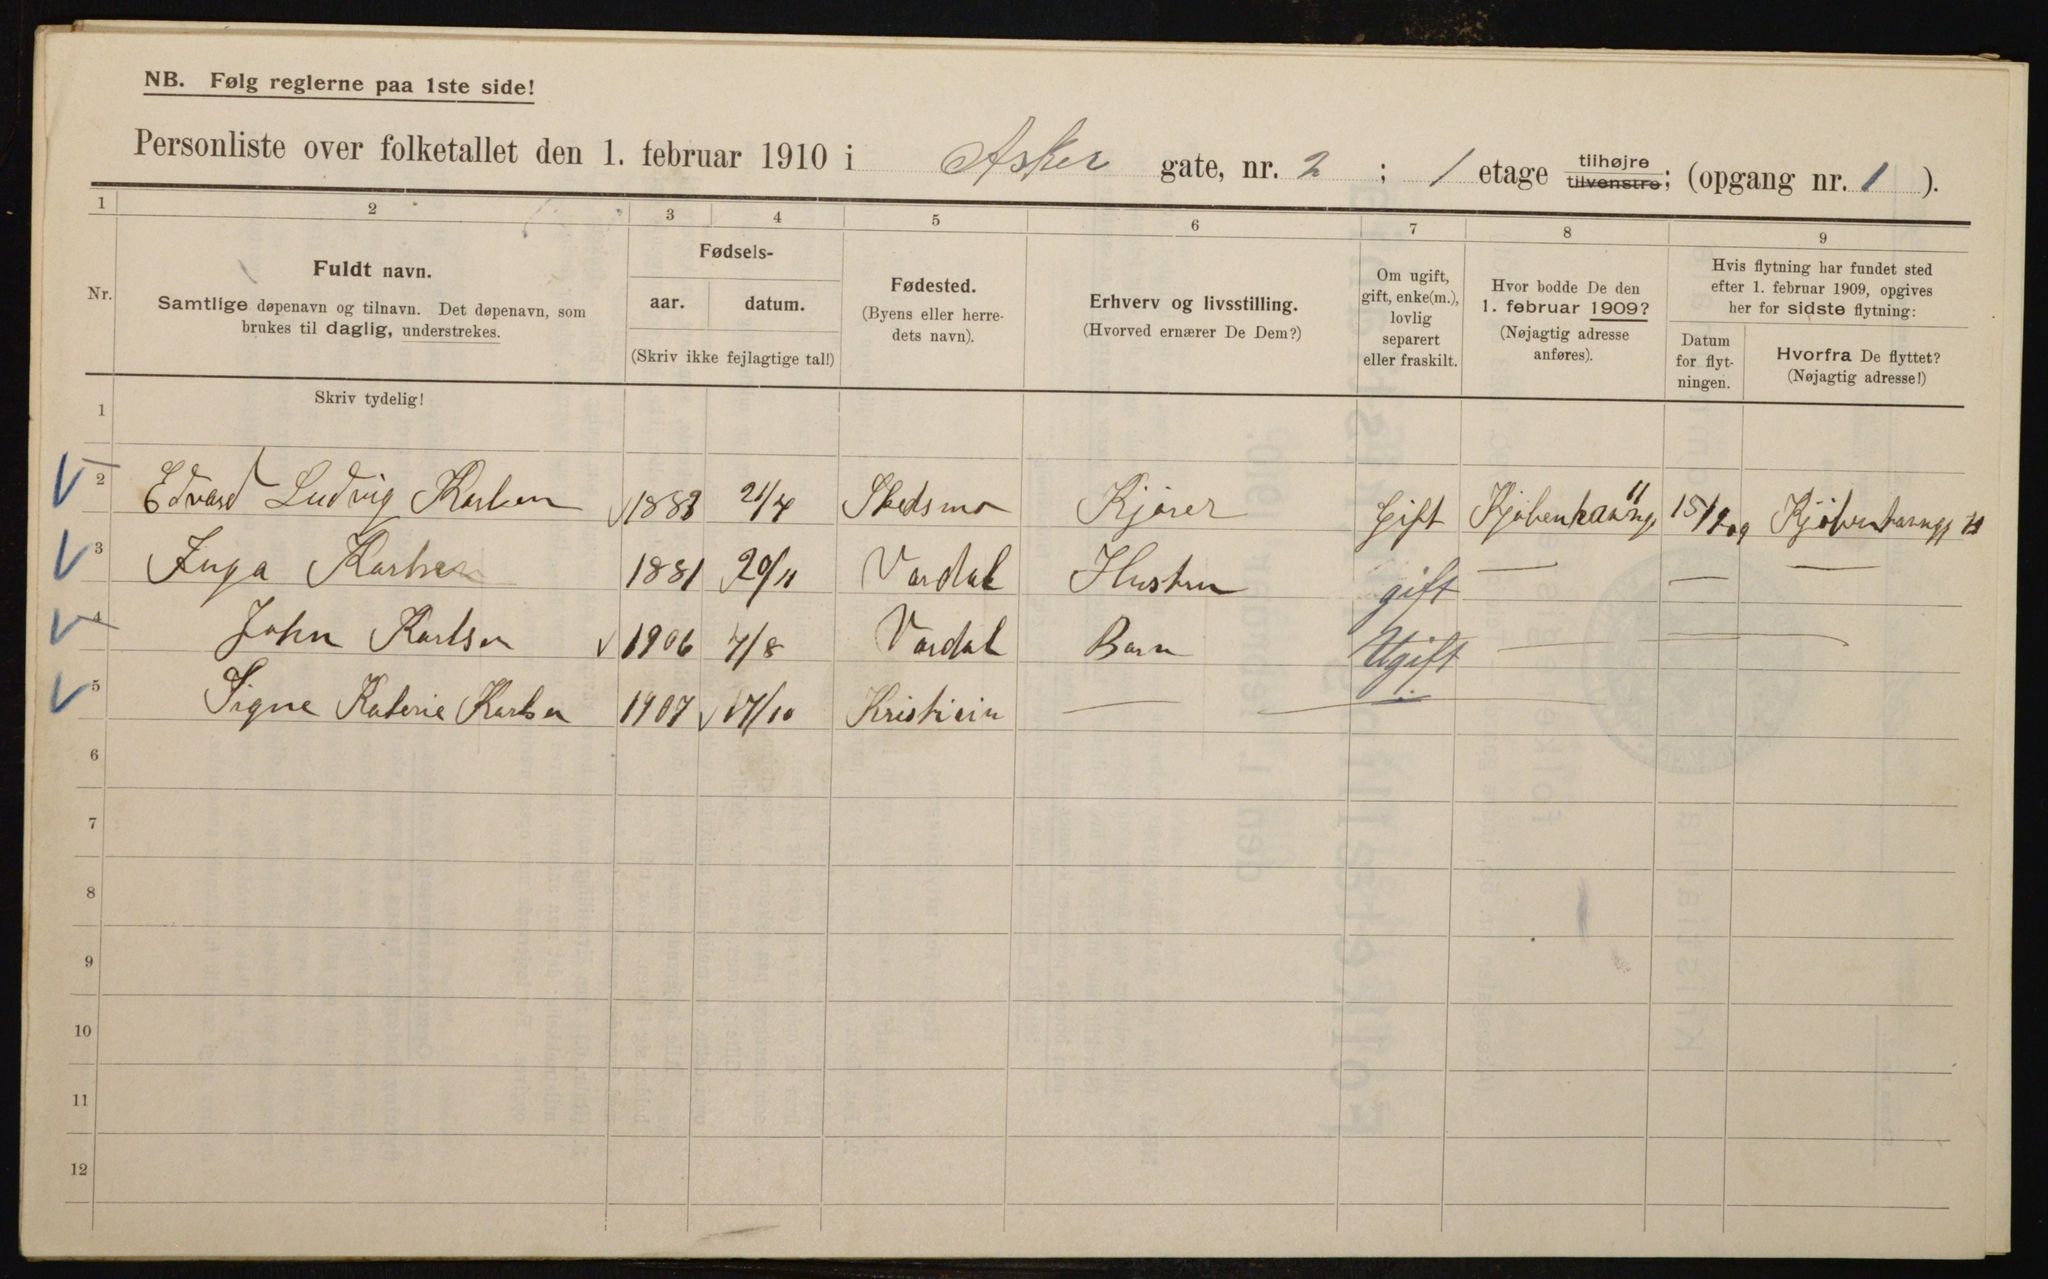 NB. Følg reglerne paa 1ste side!
Personliste over folketallet den 1. februar 1910 i Asker gate, nr. 2 ; 1 etage tilhøjre tilvenstre; (opgang nr. 1 ).
1 2 3 4 5 6 7 8 9
Nr.
Fuldt navn.
Samtlige døpenavn og tilnavn. Det døpenavn, som
brukes til daglig, understrekes.
Skriv tydelig!
Fødsels-
aar. datum.
(Skriv ikke fejlagtige tal!)
Fødested.
(Byens eller herre-
dets navn).
Erhverv og livsstilling.
(Hvorved ernærer De Dem?)
Om ugift,
gift, enke(m.),
lovlig
separert
eller fraskilt.
Hvor bodde De den
1. februar 1909?
(Nøjagtig adresse
anføres).
Hvis flytning har fundet sted
efter 1. februar 1909, opgives
her for sidste flytning:
Datum
for flyt-
ningen.
Hvorfra De flyttet?
(Nøjagtig adresse!)
1
2 Edvard Ludvig Karlsen 1883 21/4 Skedsmo Kjører Gift Kjøbenhavng 11 15/ 09 Kjøbenhavngg 11
3 Inga Karlsen 1881 20/11 Vardal Hustru gift — — —
4 John Karlsen 1906 7/8 Vardal Barn Ugift — —
5 Signe Katerie Karlsen 1907 17/10 Kristiein — —
6
7
8
9
10
11
12